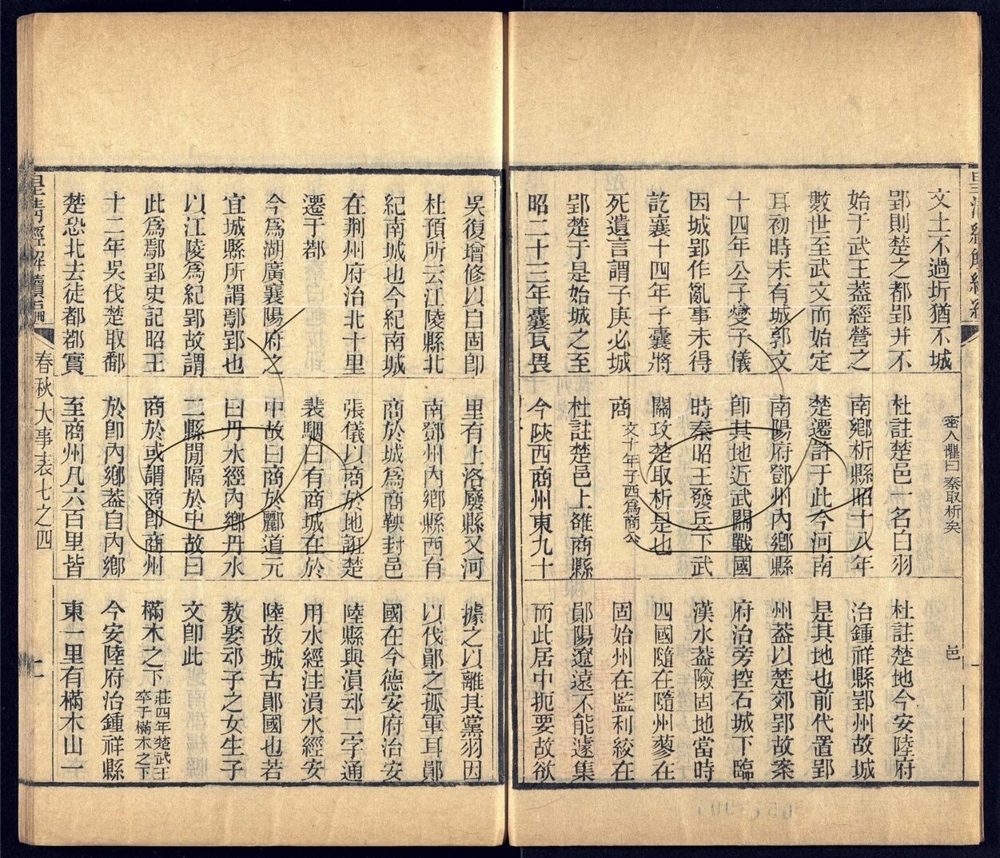 皇清經解續編
文土不過圻猶不城
郢則楚之都郢并不
始于武王蓋經營之
數世至武文而始定
耳初時未有城郭文
十四年公子燮子儀
因城郢作亂事未得
訖襄十四年子囊將
死遺言謂子庚必城
郢楚于是始城之至
昭二十三年囊瓦畏
吳復增修以自固即
杜預所云江陵縣北
紀南城也今紀南城
在荆州府治北十里
遷于鄀
今爲湖廣襄陽府之
宜城縣所謂鄢郢也
以江陵爲紀郢故謂
此爲鄢郢史記昭王
十二年吳伐楚取鄱
楚恐北去徙都鄀實
密人懼曰秦取析矣
杜註楚邑一名白羽
南鄉析縣昭十八年
楚遷許于此今河南
南陽府鄧州內鄉縣
卽其地近武關戰國
時秦昭王發兵下武
關攻楚取析是也
商文十年子西爲商公
杜註楚邑上雒商縣
今陝西商州東九十
里有上洛廢縣又河
南鄧州內鄉縣西有
商於城爲商鞅封邑
張儀以商於地誑楚
裴駰曰有商城在於
中故曰商於酈道元
曰丹水經內鄉丹水
二縣閒隔於中故曰
商於或謂商卽商州
於卽內鄉蓋自內鄉
至商州凡六百里皆
邑
杜註楚地今安陸府
治鍾祥縣郢州故城
是其地也前代置郢
州蓋以楚郊郢故案
府治旁控石城下臨
漢水蓋險固地當時
四國隨在隨州蓼在
固始州在監利絞在
鄖陽遼遠不能遽集
而此居中扼要故欲
據之以離其黨羽因
以伐鄖之孤軍耳鄖
國在今德安府治安
陸縣與溳䢵二字通
用水經注溳水經安
陸故城古鄖國也若
敖娶䢵子之女生子
文卽此
樠木之下莊四年楚武王卒于樠木之下
今安陸府治鍾祥縣
東一里有樠木山一
皇清經解續編 春秋大事表七之四 十一